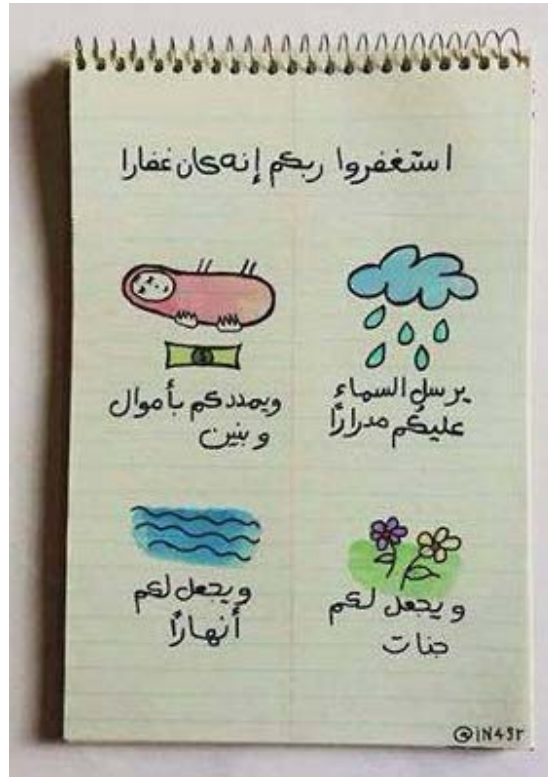 استغفروا ربكم إنه كان غفارا
يرسل السماء
عليكم مدرارًا
ويمددكم بأموال
وبنين
ويجعل لكم
جنات
ويجعل لكم
أنهارًا
@iN4Sr